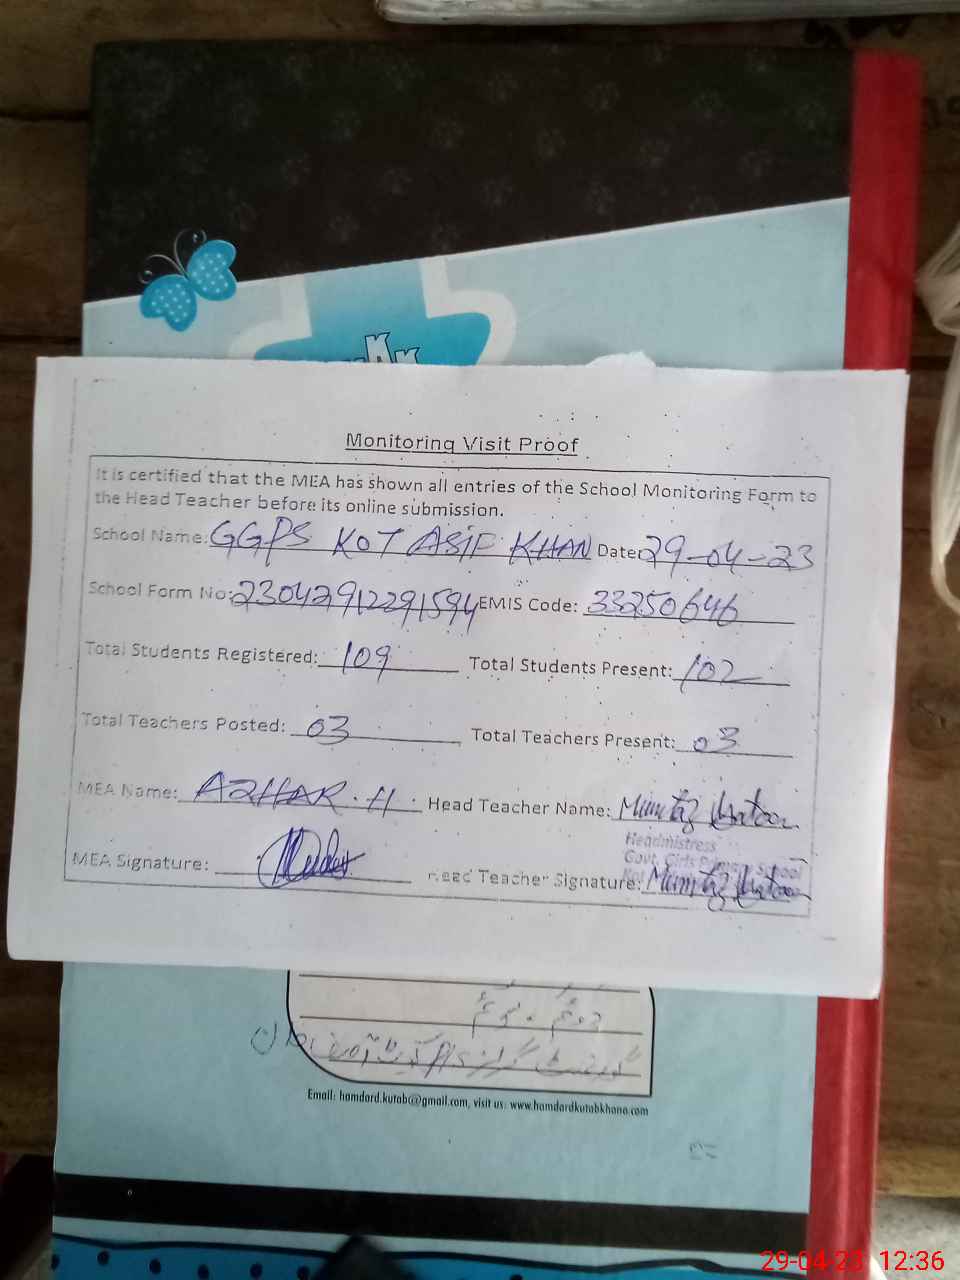 Monitoring Visit Proof
It is certified that the MEA has shown all entries of the School Monitoring Form to
the Head Teacher before its online submission.
School Name: GGPS KOT ASIF KHAN Date: 29-04-23
School Form No: 23042912291594 EMIS Code: 33250646
Total Students Registered: 109 Total Students Present: 102
Total Teachers Posted: 03 Total Teachers Present: 03
MEA Name: AZHAR.H. Head Teacher Name: Mumtaz Khatoon
Headmistress
Govt. Girls Primary School
MEA Signature: Head Teacher Signature: Mumtaz Khatoon
Email: hamdard.kutab@gmail.com, visit us: www.hamdardkutabkhana.com
29-04-23 12:36